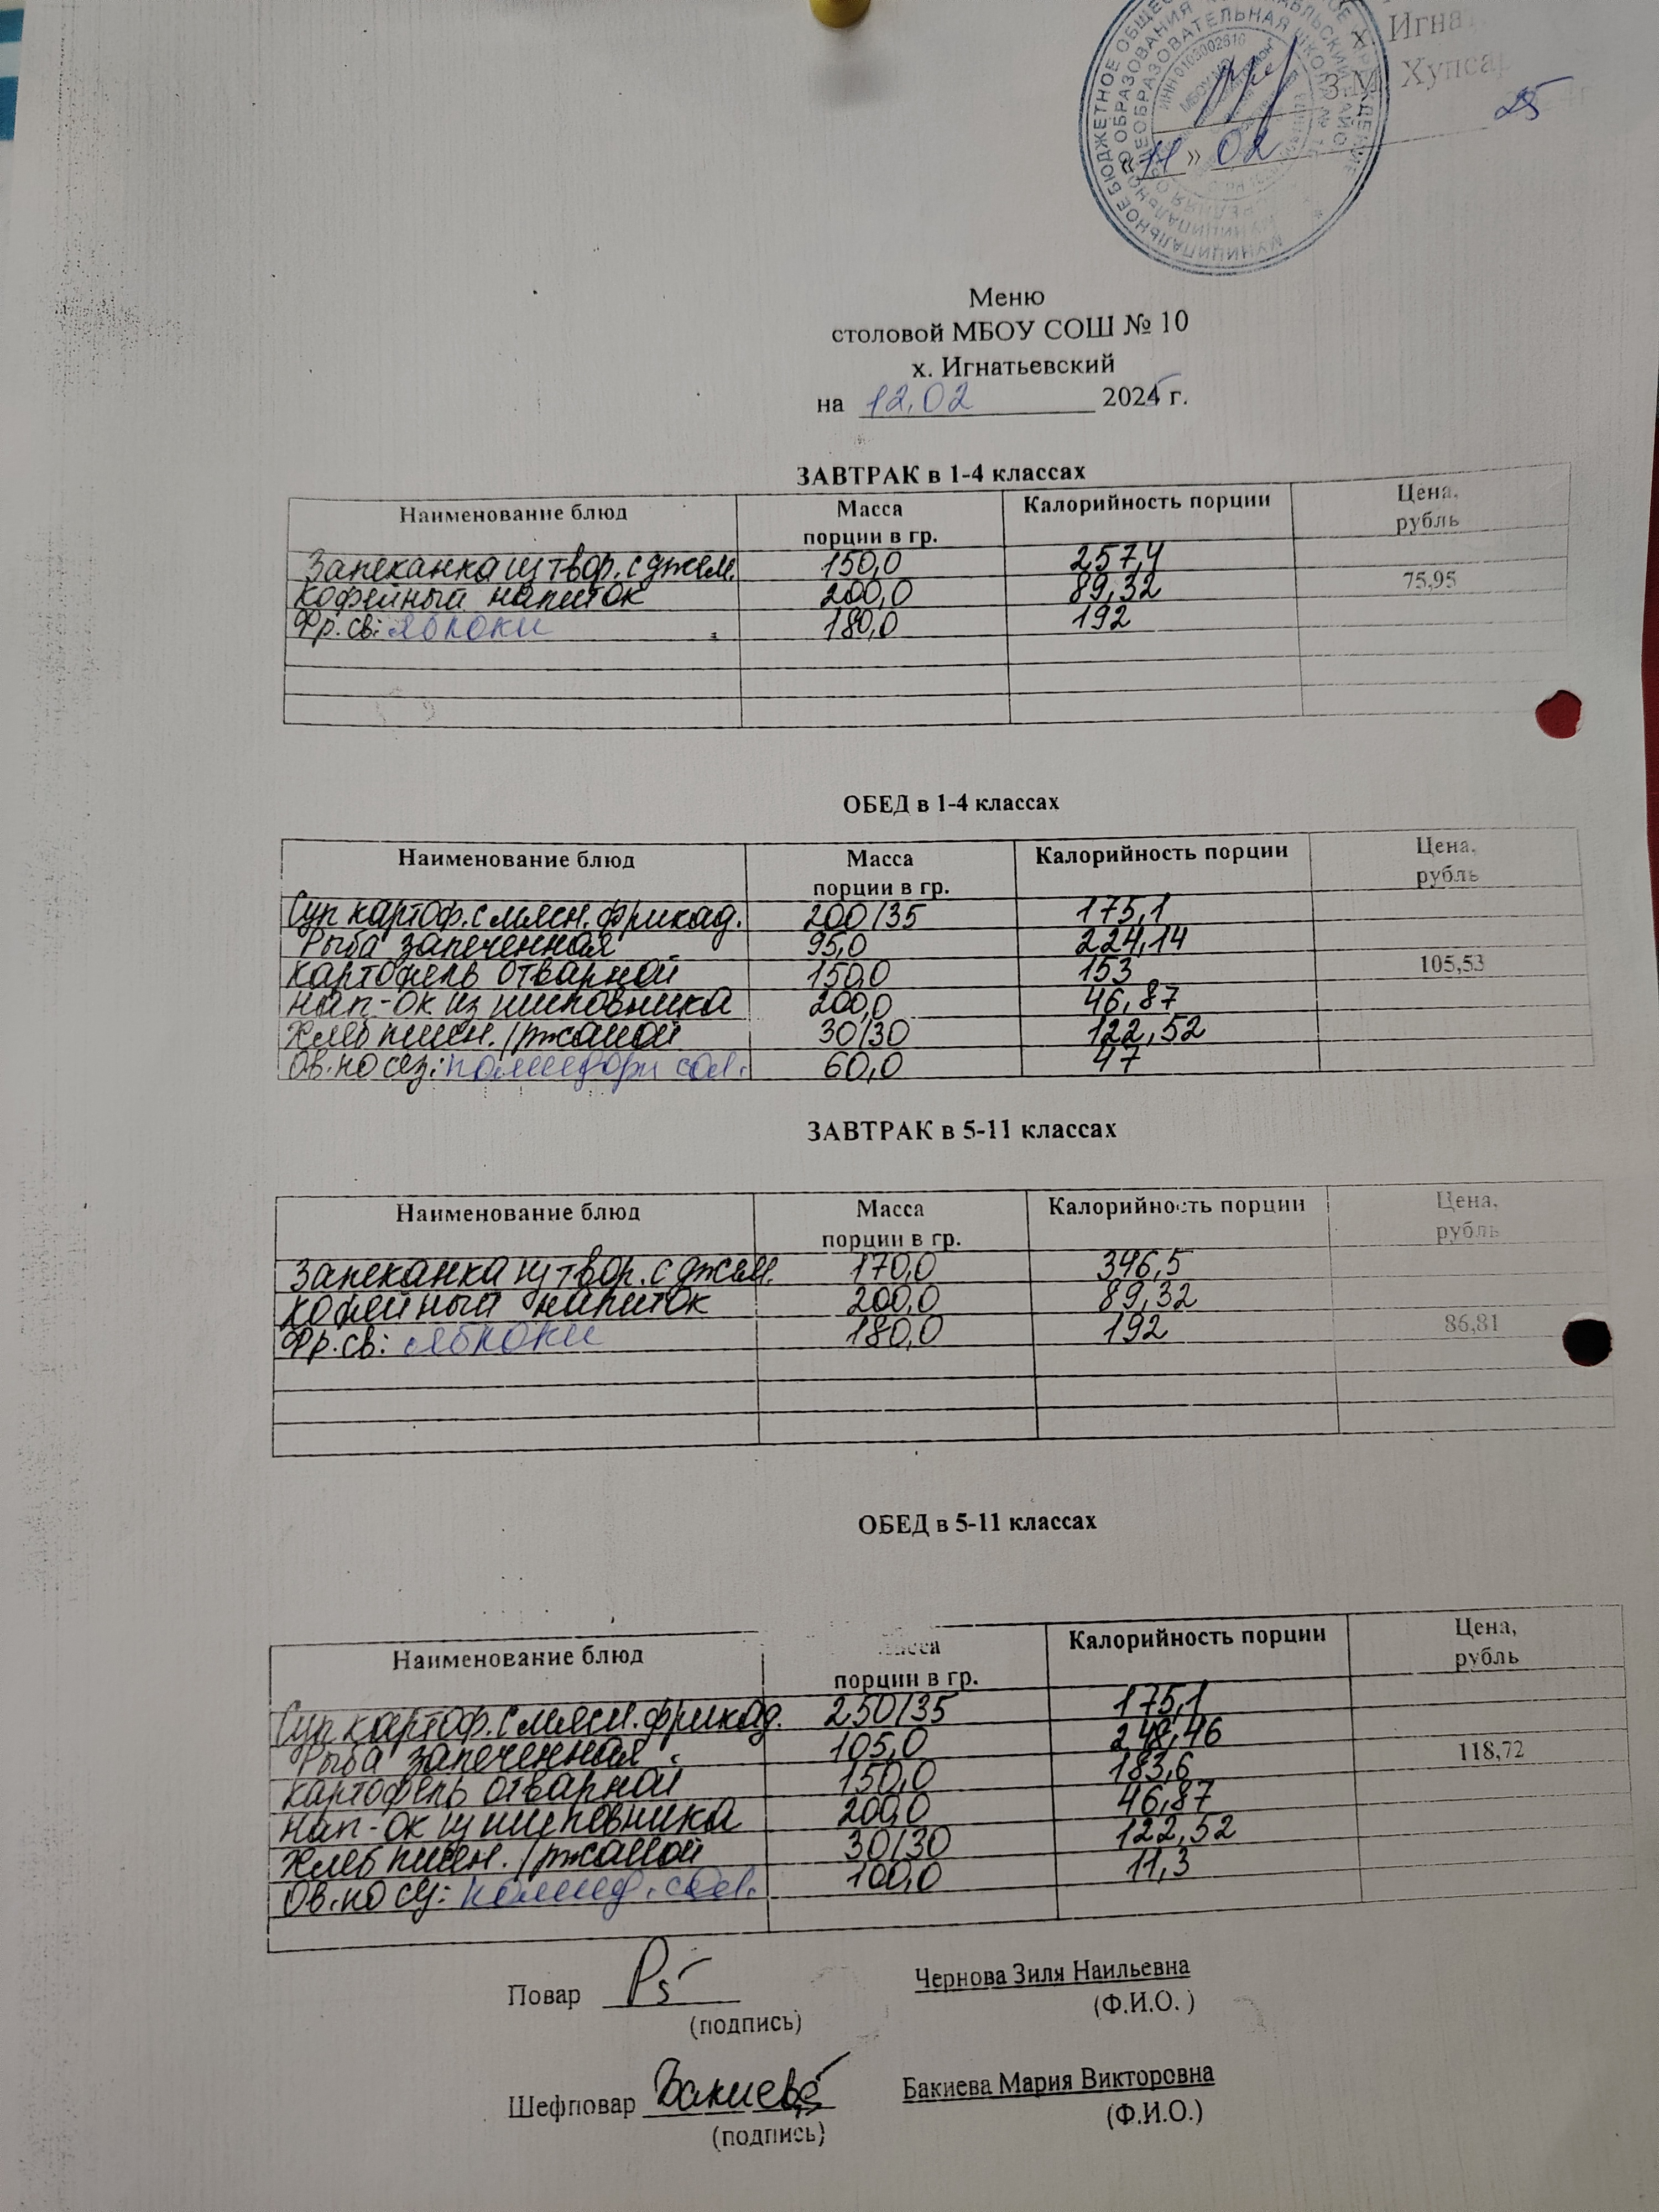 х. Игна
З.М. Хупсар
«11» 02 25
МУНИЦИПАЛЬНОЕ БЮДЖЕТНОЕ
ИНН 0103002610
Меню
столовой МБОУ СОШ № 10
х. Игнатьевский
на 12.02 2025 г.
ЗАВТРАК в 1-4 классах
Наименование блюд Масса порции в гр. Калорийность порции Цена, рубль
Запеканка из твор. с джем. 150,0 257,4
Кофейный напиток 200,0 89,32 75,95
Фр. св: яблоки 180,0 192
ОБЕД в 1-4 классах
Наименование блюд Масса порции в гр. Калорийность порции Цена, рубль
Суп картоф. с мясн. фрикад. 200/35 175,1
Рыба запеченная 95,0 224,14
Картофель отварной 150,0 153 105,53
Нап-ок из шиповника 200,0 46,87
Хлеб пшен. /ржаной 30/30 122,52
Ов. по сез: помидоры сол. 60,0 47
ЗАВТРАК в 5-11 классах
Наименование блюд Масса порции в гр. Калорийность порции Цена, рубль
Запеканка из твор. с джем. 170,0 396,5
Кофейный напиток 200,0 89,32
Фр. св: яблоки 180,0 192 86,81
ОБЕД в 5-11 классах
Наименование блюд Масса порции в гр. Калорийность порции Цена, рубль
Суп картоф. с мясн. фрикад. 250/35 175,1
Рыба запеченная 105,0 248,46
Картофель отварной 150,0 183,6 118,72
Нап-ок из шиповника 200,0 46,87
Хлеб пшен. /ржаной 30/30 122,52
Ов. по сез: помид. сол. 100,0 11,3
Повар Чернова Зиля Наильевна
(подпись) (Ф.И.О. )
Шефповар Бакиева Бакиева Мария Викторовна
(подпись) (Ф.И.О.)